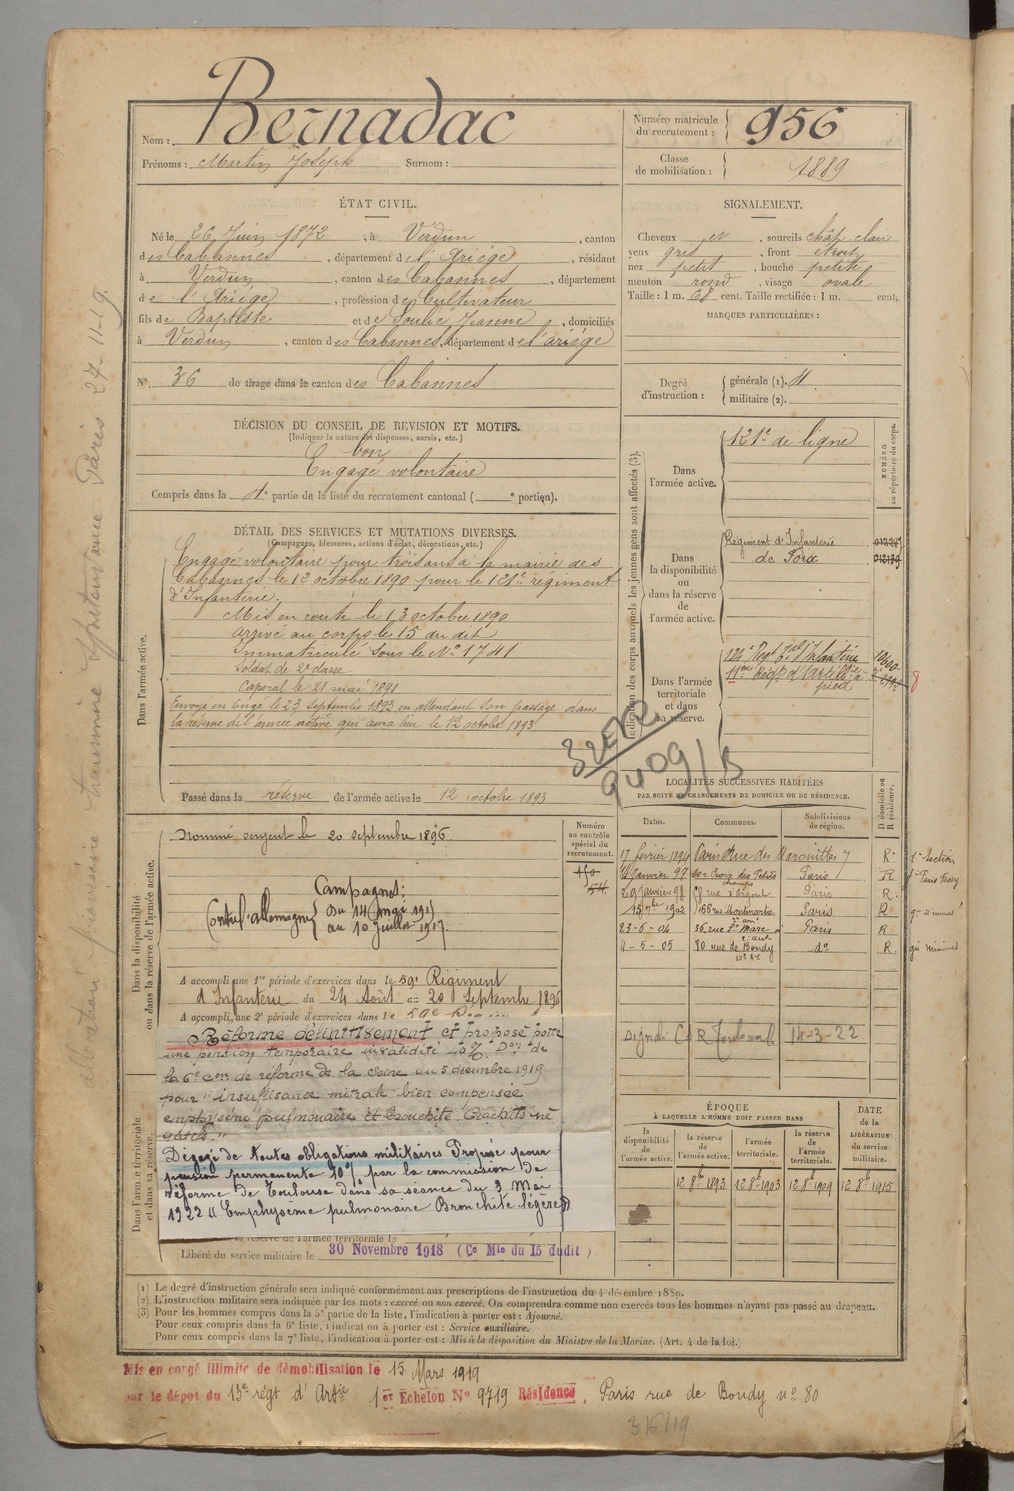 Nom : Bernadac
Prénoms : Martin Joseph Surnom :
Numéro matricule du recrutement : 956
Classe de mobilisation : 1889
ÉTAT CIVIL.
Né le 26 Juin 1872, à Verdun, canton
des Cabannes, département de l'Ariége, résidant
à Verdun, canton des Cabannes, département
de l'Ariége, profession de Cultivateur
fils de Baptiste et de Soulié Jeanne, domiciliés
à Verdun, canton des Cabannes, département de l'ariége
N° 36 de tirage dans le canton des Cabannes
SIGNALEMENT.
Cheveux et, sourcils chât. clair
yeux gris, front étroit
nez petit, bouche petite
menton rond, visage ovale
Taille : 1 m. 68 cent. Taille rectifiée : 1 m. cent.
MARQUES PARTICULIÈRES :
Degré d'instruction :
générale (1).
militaire (2).
DÉCISION DU CONSEIL DE REVISION ET MOTIFS.
(Indiquer la nature des dispenses, sursis, etc.)
bon
Engagé volontaire
Compris dans la 4e partie de la liste du recrutement cantonal ( e portion).
DÉTAIL DES SERVICES ET MUTATIONS DIVERSES.
(Campagnes, blessures, actions d'éclat, décorations, etc.)
Dans l'armée active.
Engagé volontaire pour trois ans à la mairie des
Cabannes le 1e octobre 1890 pour le 121e régiment
d'Infanterie.
Mis en route le 13 octobre 1890
arrivé au corps le 15 du dit
Immatriculé sous le N° 1741
Soldat de 2e classe
Caporal le 21 mai 1891
Envoyé en congé le 23 septembre 1893 en attendant son passage dans
la réserve de l'armée active qui aura lieu le 12 octobre 1893
Passé dans la réserve de l'armée active le 12 octobre 1893
Indication des corps auxquels les jeunes gens sont affectés (3).
NUMÉRO au répertoire du corps.
Dans l'armée active.
121e de ligne
Dans la disponibilité ou dans la réserve de l'armée active.
Régiment d'Infanterie
de Foix
Dans l'armée territoriale et dans sa réserve.
9409/B
LOCALITÉS SUCCESSIVES HABITÉES
PAR SUITE DE CHANGEMENTS DE DOMICILE OU DE RÉSIDENCE.
Dates. Communes. Subdivisions de région. D domicile ou R résidence.
17 février 1894 Paris Rue des Marmittes 7 R.
Janvier 97 Croix des Petits Champs Paris R
29 Janvier 98 rue d'argout Paris R.
15 1902 166 rue Montmartre Paris R
23-6-04 36 rue St Marc Paris R
4-5-05 80 rue de Bondy do R.
14-3-22
Dans la disponibilité ou dans la réserve de l'armée active.
Numéro au contrôle spécial du recrutement.
Nommé sergent le 20 septembre 1896
Campagnes :
Contre l'allemagne { Du 14 mai 191
au 10 juillet 1917.
A accompli une 1re période d'exercices dans le 59e Régiment
d'Infanterie du 24 Août au 20 Septembre 1896
A accompli une 2e période d'exercices dans le 59e
Réformé définitivement et proposé pour
une pension temporaire invalidité 10% Don de
la 6e Con de réforme de la Seine du 5 décembre 1919
pour "insuffisance mitrale bien compensée
emphysème pulmonaire et bronchite. Crachats né
gatifs."
Dégagé de toutes obligations militaires Proposé pour
pension permanente 10% par la commission de
réforme de Toulouse dans sa séance du 3 Mai
1922 " Emphysème pulmonaire Bronchite légère"
Dans l'armée territoriale et dans sa réserve.
la réserve de l'armée territoriale le
Libéré du service militaire le 30 Novembre 1918 (Ce Mle du 15 dudit)
ÉPOQUE
À LAQUELLE L'HOMME DOIT PASSER DANS
la disponibilité de l'armée active. la réserve de l'armée active. l'armée territoriale. la réserve de l'armée territoriale.
DATE DE LA LIBÉRATION du service militaire.
12 8bre 1893 12 8bre 1903 12 8bre 1909 12 8bre 1915
(1) Le degré d'instruction générale sera indiqué conformément aux prescriptions de l'instruction du 4 décembre 1889.
(2) L'instruction militaire sera indiquée par les mots : exercé ou non exercé. On comprendra comme non exercés tous les hommes n'ayant pas passé au drapeau.
(3) Pour les hommes compris dans la 5e partie de la liste, l'indication à porter est : Ajourné.
Pour ceux compris dans la 6e liste, l'indication à porter est : Service auxiliaire.
Pour ceux compris dans la 7e liste, l'indication à porter est : Mis à la disposition du Ministre de la Marine. (Art. 4 de la loi.)
Mis en congé illimité de démobilisation le 15 Mars 1919
par le dépot du 13e régt d'Artie 1er Echelon N° 9719 Résidence, Paris rue de Bondy n° 80
3/6/19